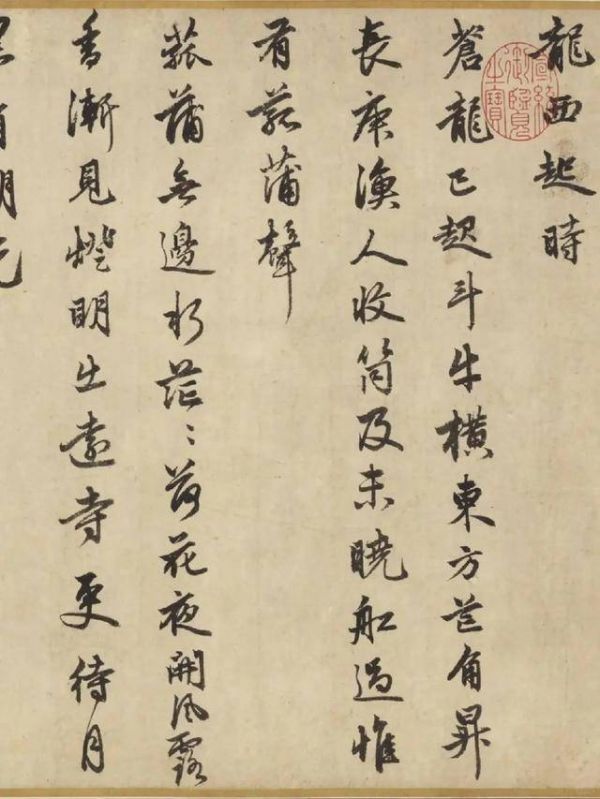 龍西起時
蒼龍已超斗牛橫東方芒角昇
長庚漁人收筒及未曉船過惟
有菰蒲聲
菰蒲無邊水茫〻荷花夜開風露
香漸見燈明出遠寺更待月
宣統御覽之寶